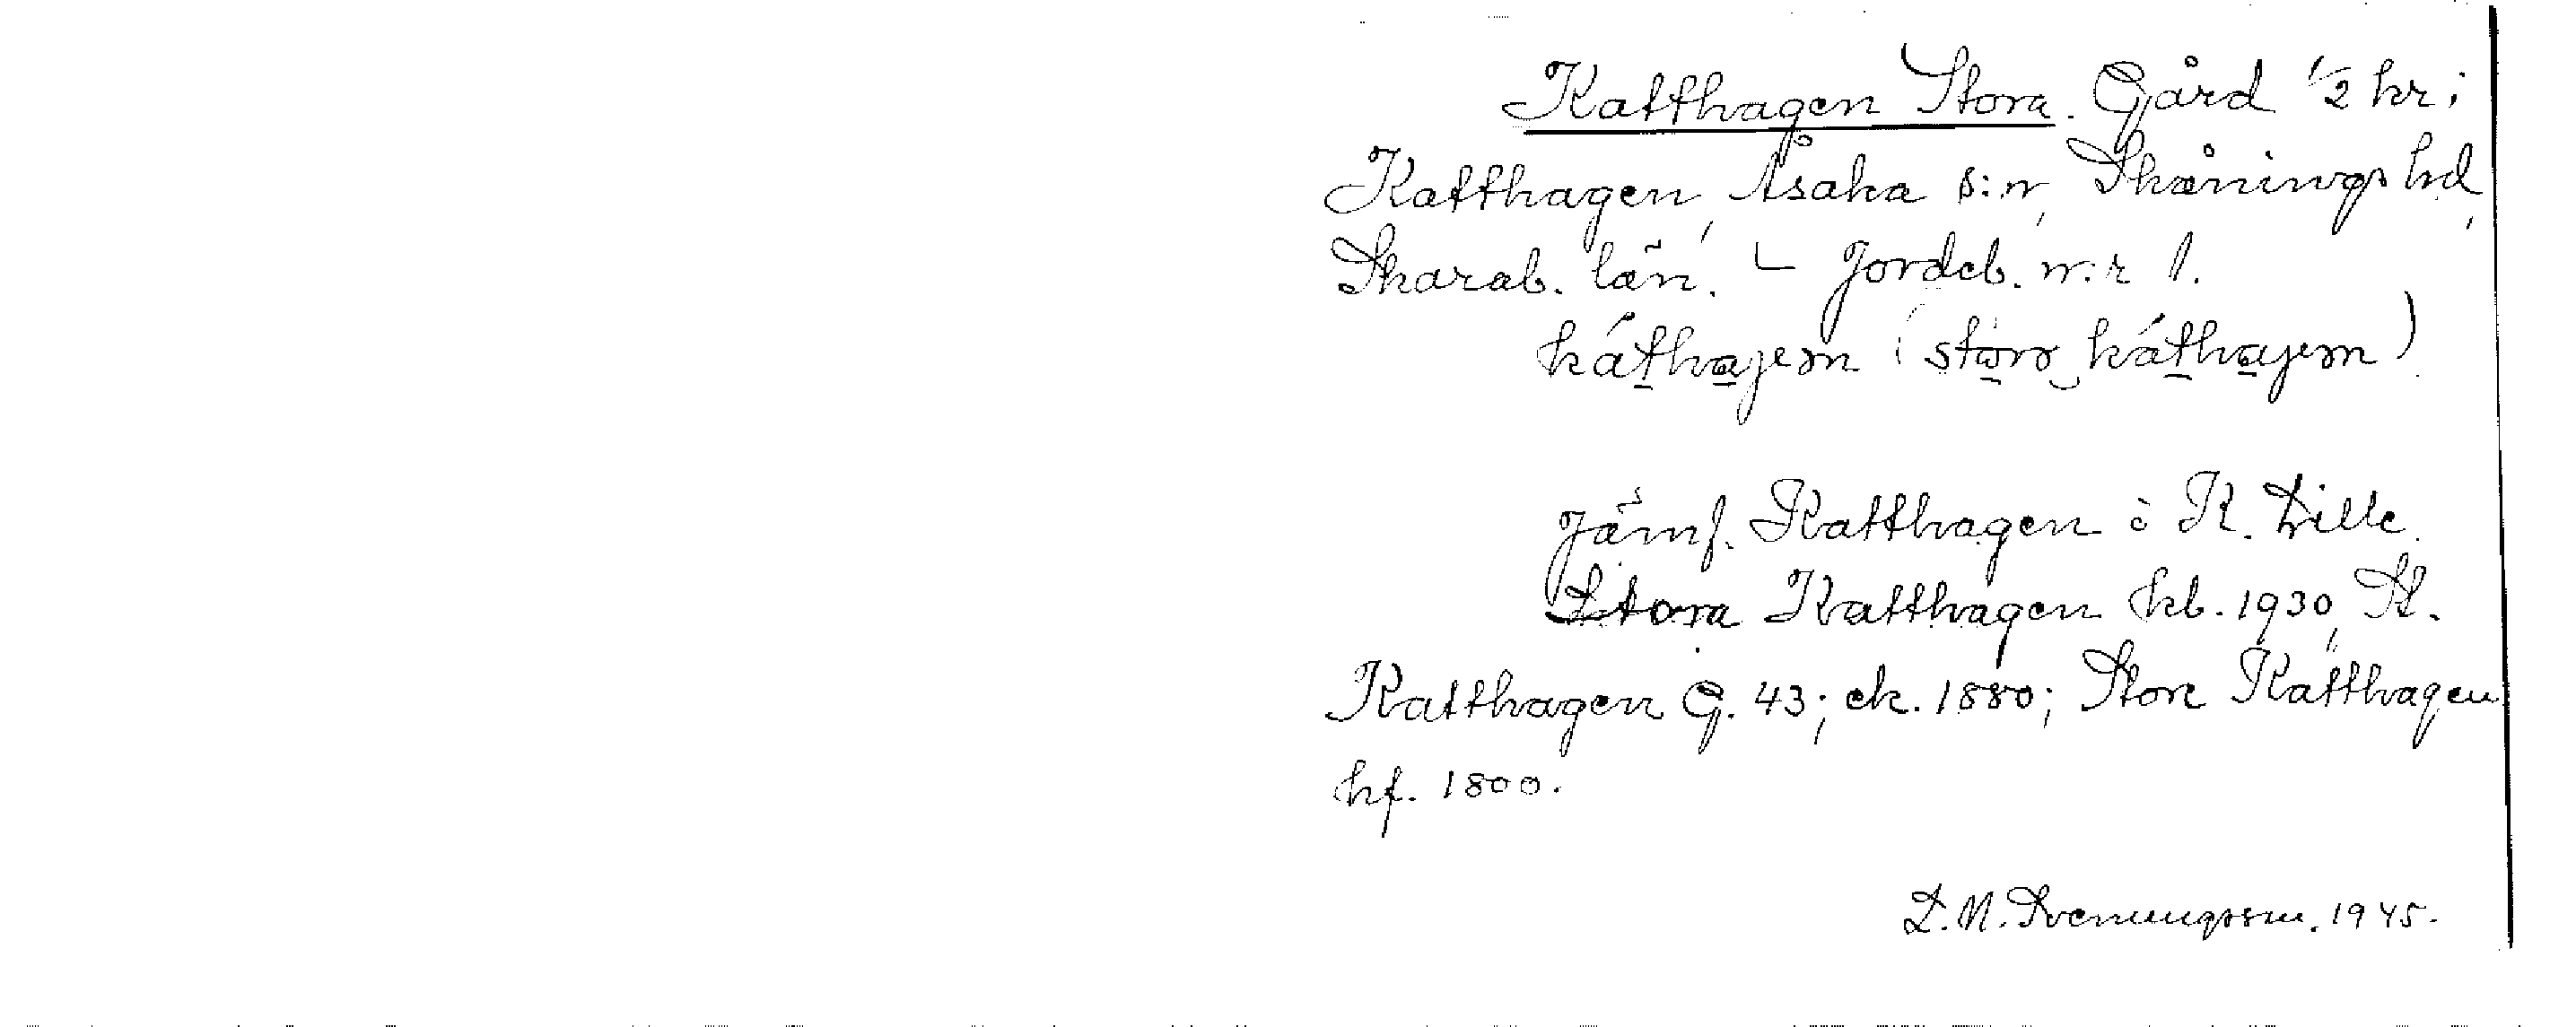 Katthagen Stora. Gård 1/2 hr i
Katthagen, Åsaka s:n, Skånings hd,
Skarab. län. – Jordeb. n:r 1.
káthajem (stóro káthajem)
Jämf. Katthagen o K. Lille.
Stora Katthagen kb. 1930, St.
Katthagen G. 43; ek. 1880; Store Katthagen
hf. 1800.
L. M. Svenungsson. 1945.